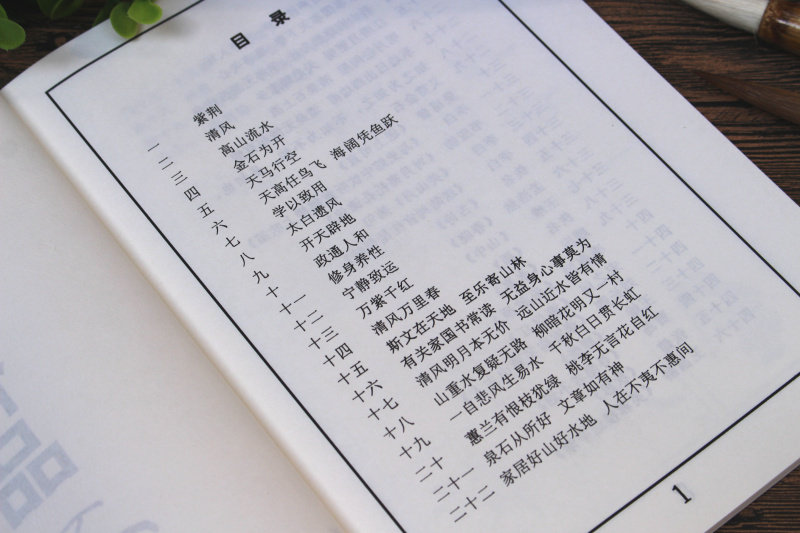 目 录
一 紫荆
二 清风
三 高山流水
四 金石为开
五 天马行空
六 天高任鸟飞 海阔凭鱼跃
七 学以致用
八 太白遗风
九 开天辟地
十 政通人和
十一 修身养性
十二 宁静致远
十三 万紫千红
十四 清风万里春
十五 斯文在天地 至乐寄山林
十六 有关家国书常读 无益身心事莫为
十七 清风明月本无价 远山近水皆有情
十八 山重水复疑无路 柳暗花明又一村
十九 一自悲风生易水 千秋白日贯长虹
二十 蕙兰有恨枝犹绿 桃李无言花自红
二十一 泉石从所好 文章如有神
二十二 家居好山好水地 人在不夷不惠间
1